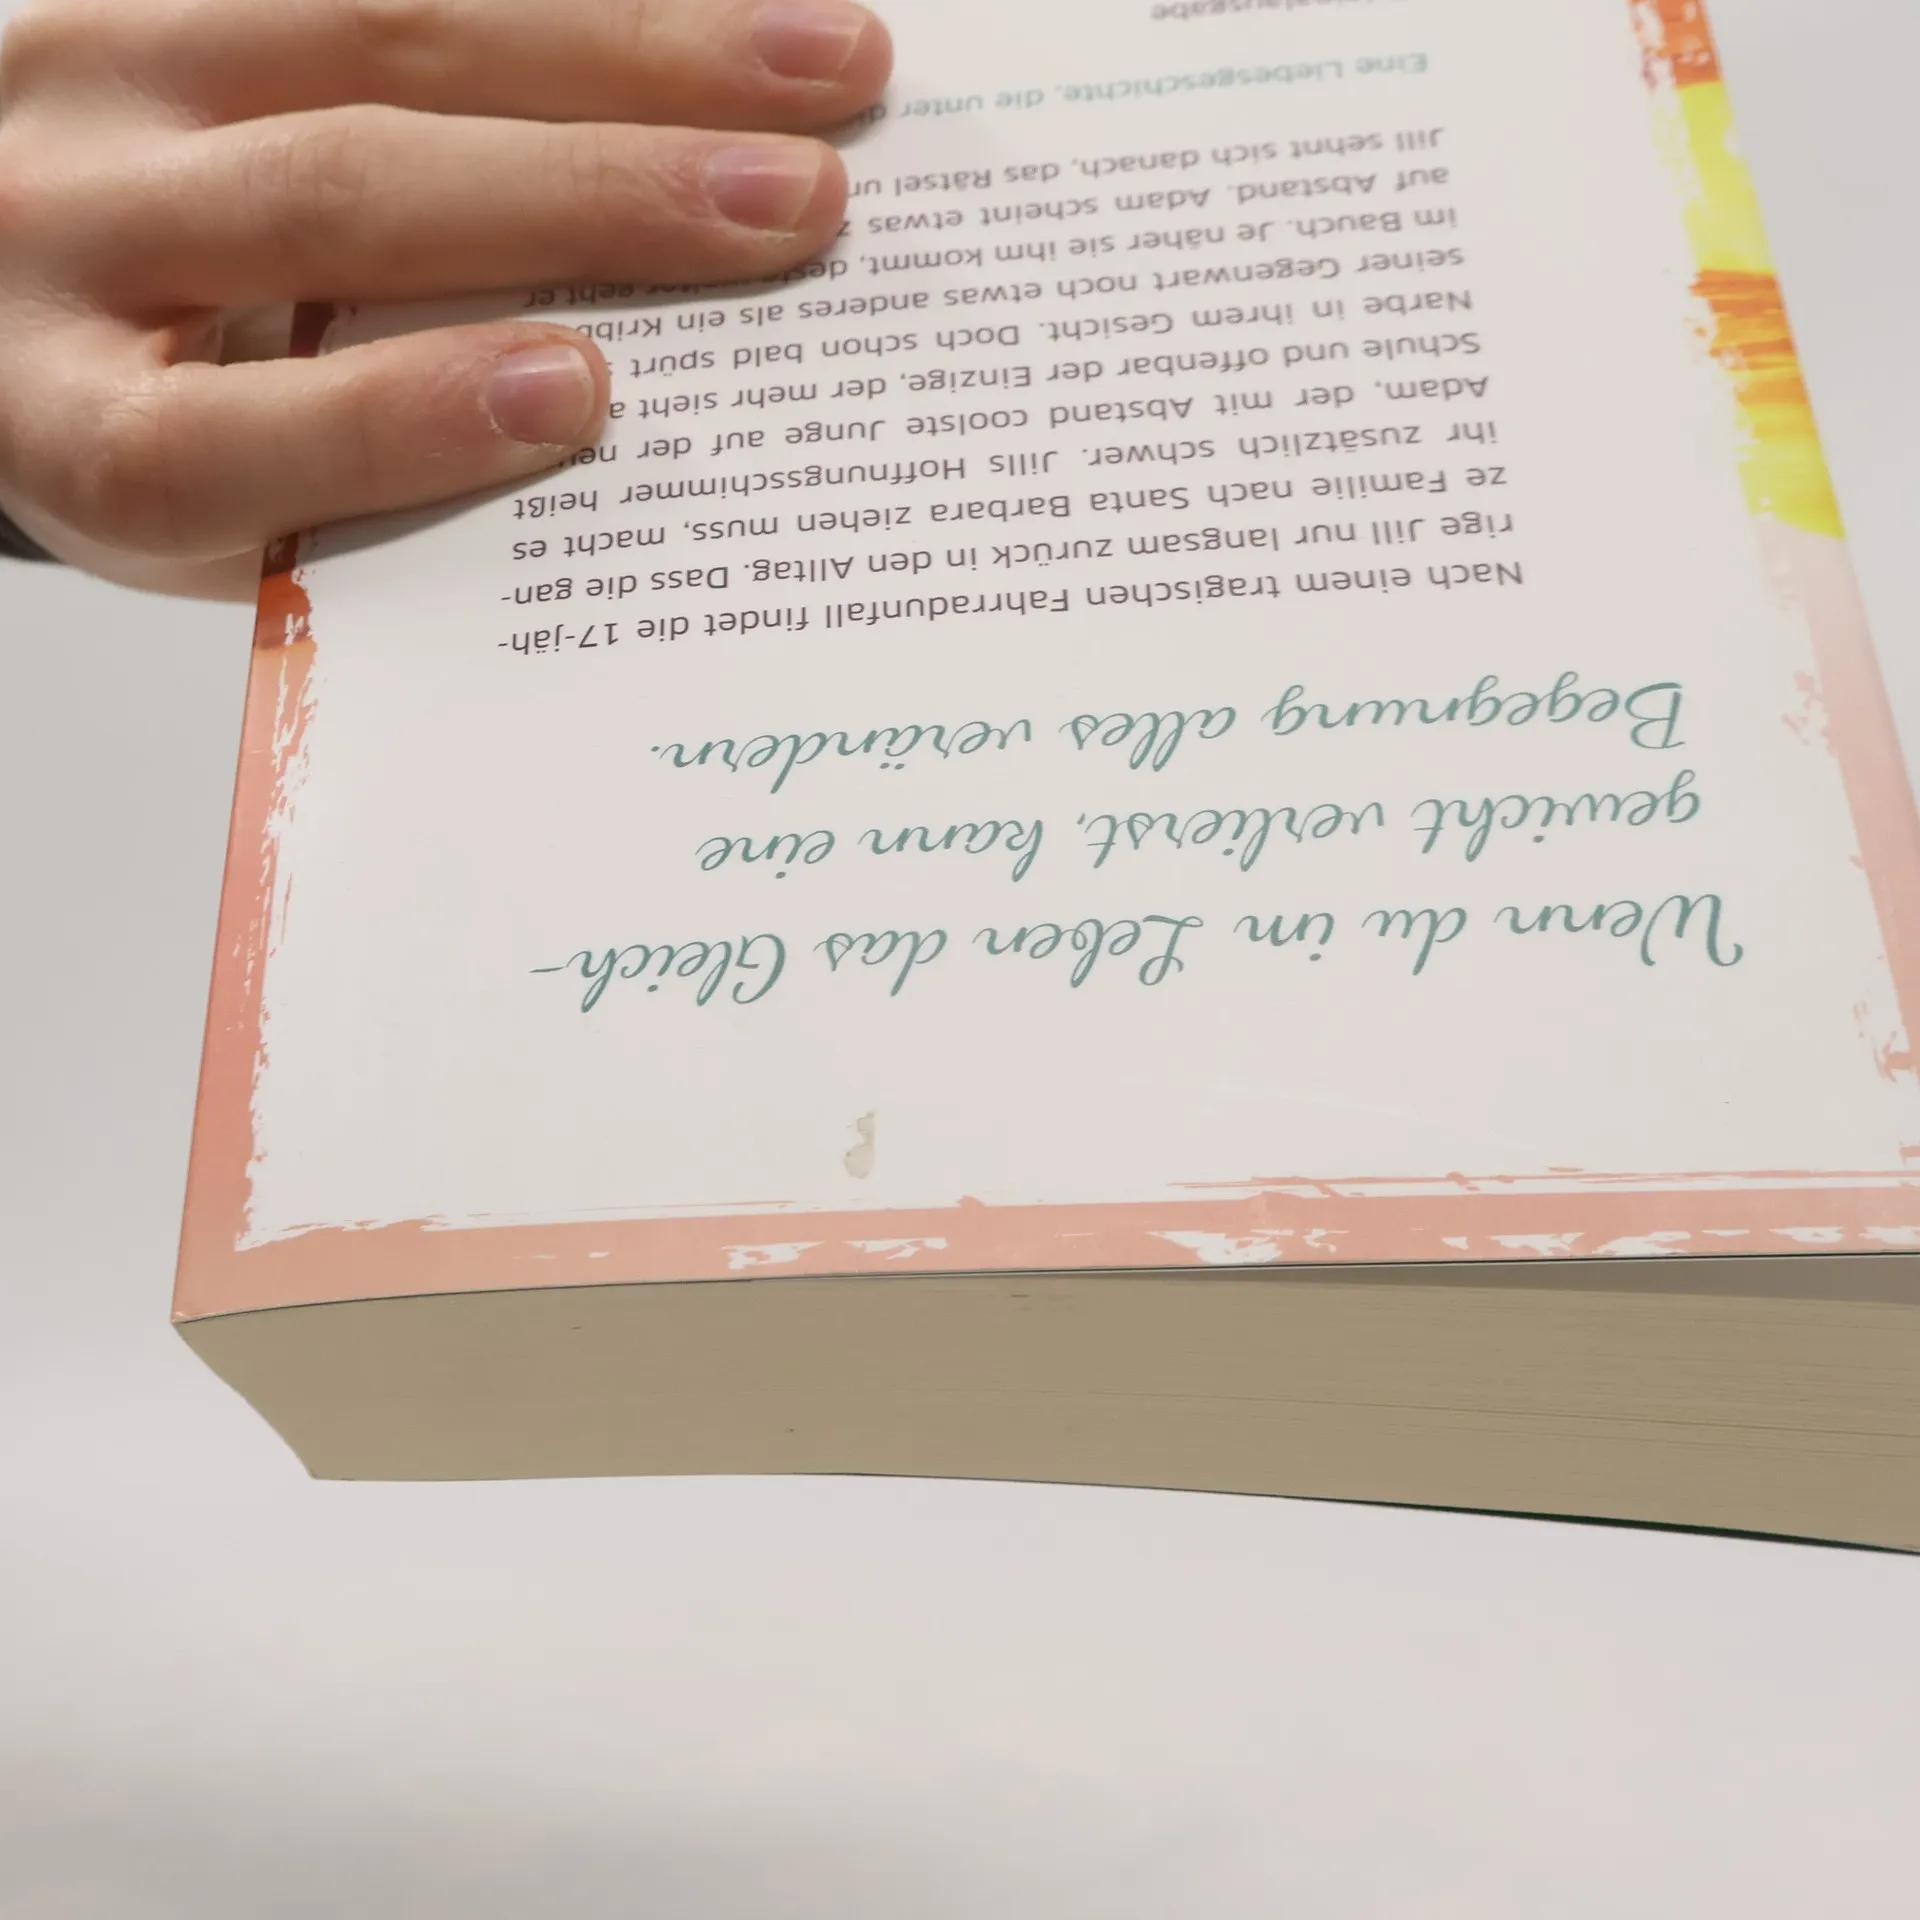 Wenn du im Leben das Gleich-
gewicht verlierst, kann eine
Begegnung alles verändern.
Nach einem tragischen Fahrradunfall findet die 17-jäh-
rige Jill nur langsam zurück in den Alltag. Dass die gan-
ze Familie nach Santa Barbara ziehen muss, macht es
ihr zusätzlich schwer. Jills Hoffnungsschimmer heißt
Adam, der mit Abstand coolste Junge auf der
Schule und offenbar der Einzige, der mehr sieht
Narbe in ihrem Gesicht. Doch schon bald spürt
seiner Gegenwart noch etwas anderes als ein
im Bauch. Je näher sie ihm kommt, geht er
auf Abstand. Adam scheint etwas
Jill sehnt sich danach, das Rätsel
Eine Liebesgeschichte, die unter